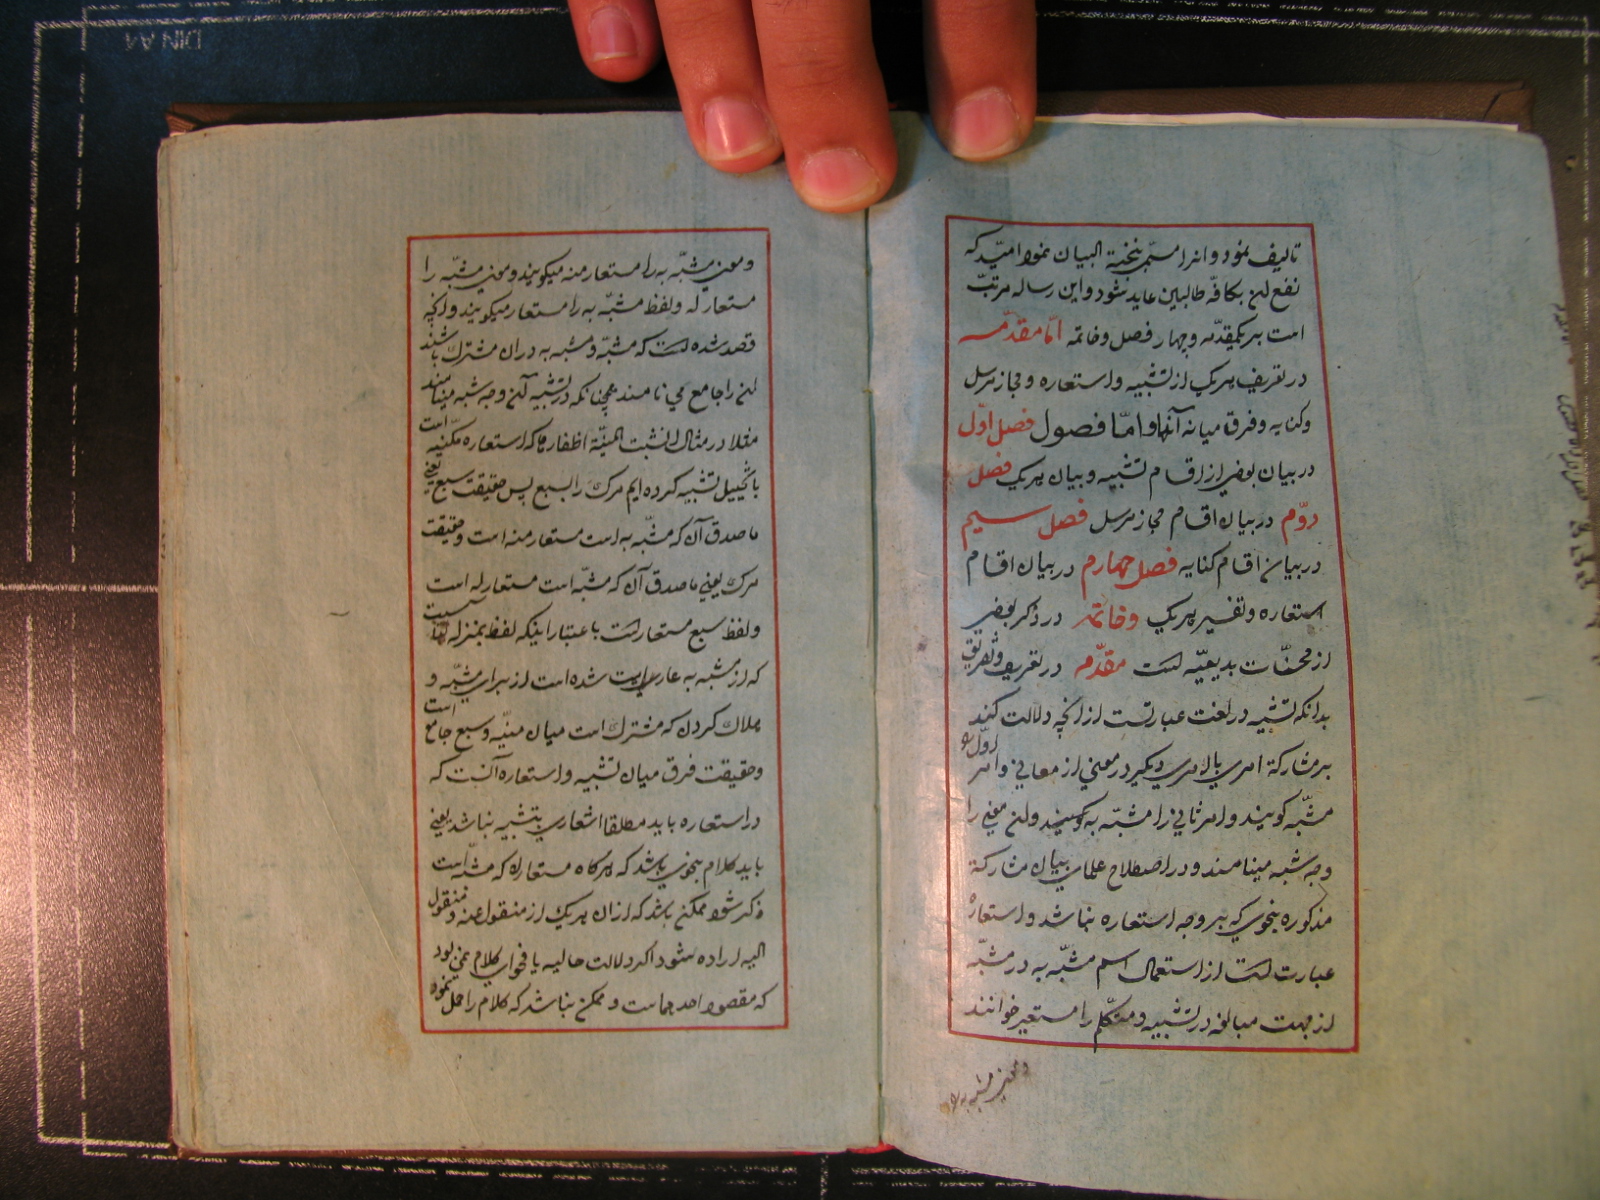 تالیف نمود و انرا مسمی بنخبة البیان نمود امید که
نفع ان بکافه طالبین عاید شود و این رساله مرتب
است بر یکمقدمه و چهار فصل و خاتمه امّا مقدّمه
در تعریف هریک از تشبیه و استعاره و مجاز مرسل
و کنایه و فرق میانه آنها و امّا فصول فصل اوّل
در بیان بعضی از اقسام تشبیه و بیان هریک فصل
دوّم در بیان اقسام مجاز مرسل فصل سیم
در بیان اقسام کنایه فصل چهارم در بیان اقسام
استعاره و تفسیر هریک و خاتمه در ذکر بعضی
از محسّنات بدیعیّه است مقدّمه در تعریف و تفریق
بدانکه تشبیه در لغت عبارتست از انچه دلالت کند
بر مشارکة امری باامری دیگر در معنی از معانی و امر اوّل را
مشبّه گویند و امر ثانی را مشبّه به گویند و ان معنی را
وجه شبه مینامند و در اصطلاح علمای بیان مشارکة
مذکوره بنحوی که بر وجه استعاره نباشد و استعاره
عبارت است از استعمال اسم مشبّه به در مشبّه
از جهت مبالغه در تشبیه و متکلّم را مستعیر خوانند
و معنی مشبه به
و معنی مشبّه به را مستعار منه میگویند و معنی مشبّه را
مستعار له و لفظ مشبّه به را مستعار میگویند و انچه
قصد شده است که مشبّه و مشبه به دران مشترک باشند
ان را جامع می نامند همچنانکه در تشبیه آن وجه شبه مینامند
مثلا در مثال انشبت المنیّة اظفارها که استعاره مکنیه است
با تخییل تشبیه کرده ایم مرک را بسبع پس حقیقت سبع یعنی
ما صدق آن که مشبّه به است مستعار منه است و حقیقت
مرک یعنی ما صدق آن که مشبّه است مستعار له است
و لفظ سبع مستعار است باعتبار اینکه لفظ بمنزله
که از مشبه به عاریت شده است از برای مشبّه و
هلاک کردن که مشترک است میان منیّه و سبع جامع است
و حقیقت فرق میان تشبیه و استعاره آنست که
در استعاره باید مطلقا اشعاری بتشبیه نباشد یعنی
باید کلام بنحوی باشد که هرکاه مستعار له که مشبّه است
ذکر شود ممکن باشد که ازان هریک از منقول عنه و منقول
الیه اراده شود اکر دلالت حالیه یا فحوای کلام نبود
که مقصود احدهماست و ممکن نباشد که کلام را حمل نمود